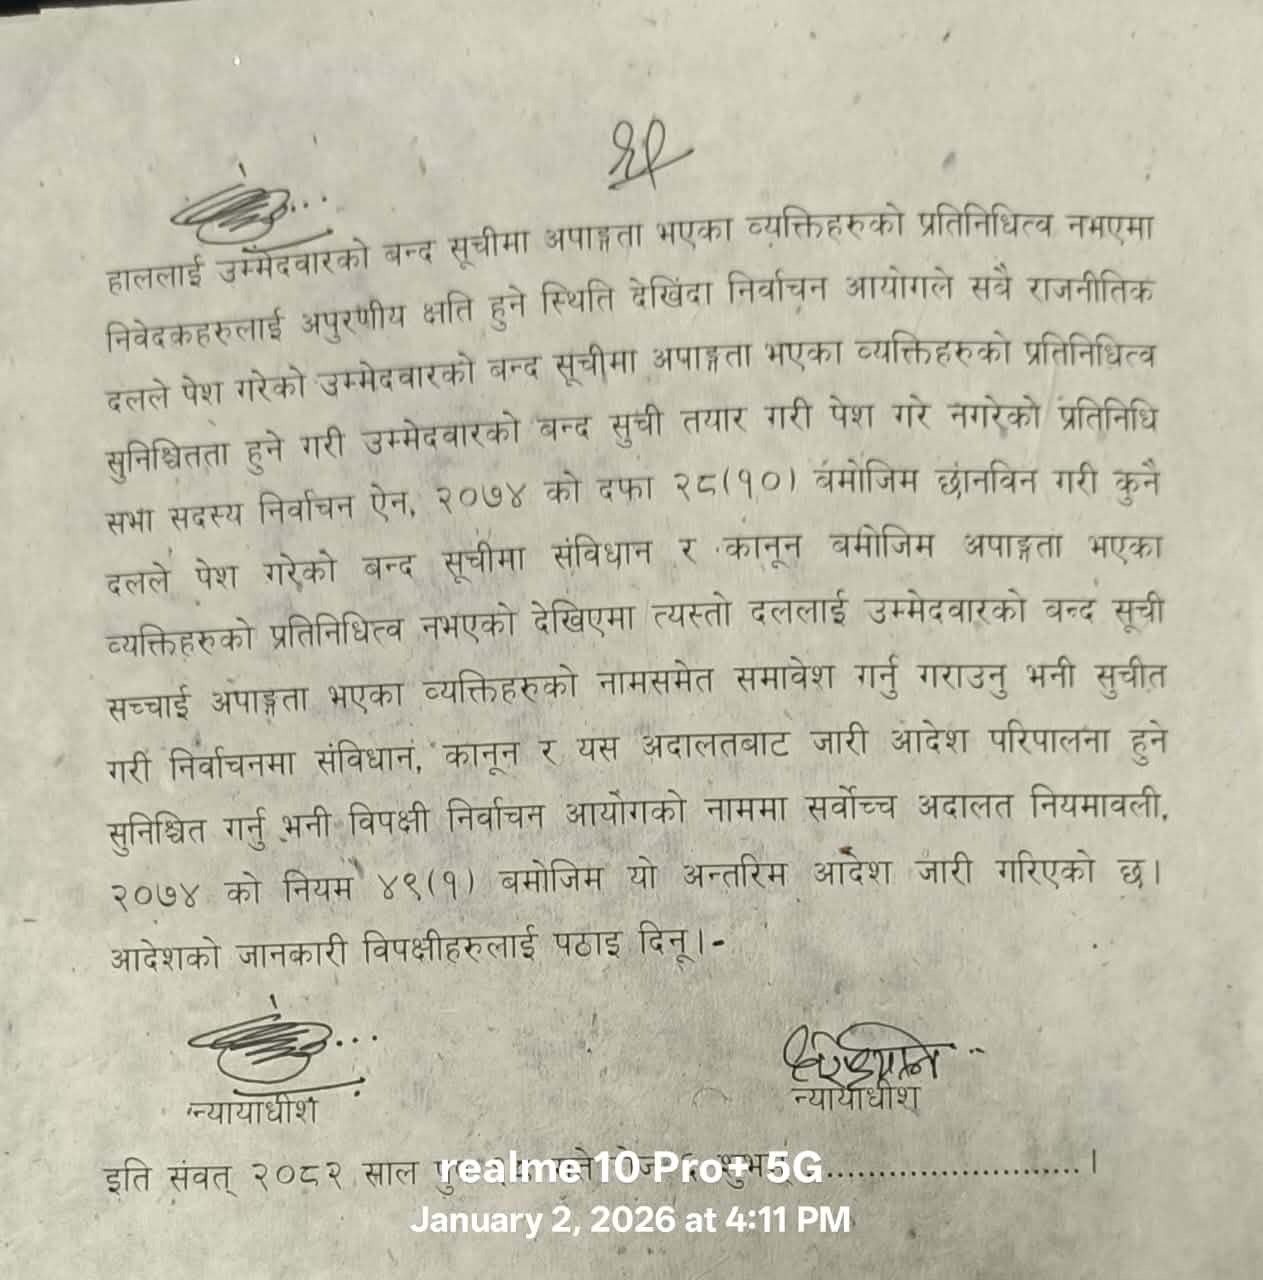 हाललाई उम्मेदवारको बन्द सूचीमा अपाङ्गता भएका व्यक्तिहरुको प्रतिनिधित्व नभएमा
निवेदकहरुलाई अपुरणीय क्षति हुने स्थिति देखिंदा निर्वाचन आयोगले सबै राजनीतिक
दलले पेश गरेको उम्मेदवारको बन्द सूचीमा अपाङ्गता भएका व्यक्तिहरुको प्रतिनिधित्व
सुनिश्चितता हुने गरी उम्मेदवारको बन्द सुची तयार गरी पेश गरे नगरेको प्रतिनिधि
सभा सदस्य निर्वाचन ऐन, २०७४ को दफा २८(१०) बमोजिम छानविन गरी कुनै
दलले पेश गरेको बन्द सूचीमा संविधान र कानून बमोजिम अपाङ्गता भएका
व्यक्तिहरुको प्रतिनिधित्व नभएको देखिएमा त्यस्तो दललाई उम्मेदवारको बन्द सूची
सच्चाई अपाङ्गता भएका व्यक्तिहरुको नामसमेत समावेश गर्नु गराउनु भनी सुचीत
गरी निर्वाचनमा संविधान, कानून र यस अदालतबाट जारी आदेश परिपालना हुने
सुनिश्चित गर्नु भनी विपक्षी निर्वाचन आयोगको नाममा सर्वोच्च अदालत नियमावली,
२०७४ को नियम ४९(१) बमोजिम यो अन्तरिम आदेश जारी गरिएको छ।
आदेशको जानकारी विपक्षीहरुलाई पठाइ दिनू।-
न्यायाधीश न्यायाधीश
इति संवत् २०८२ साल
realme 10 Pro+ 5G
January 2, 2026 at 4:11 PM